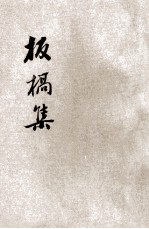 板橋集